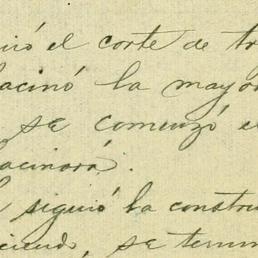 uió el corte de tr
acinó la mayo
se comenzó e
acinará.
siguió la constru
ciendo, se termi